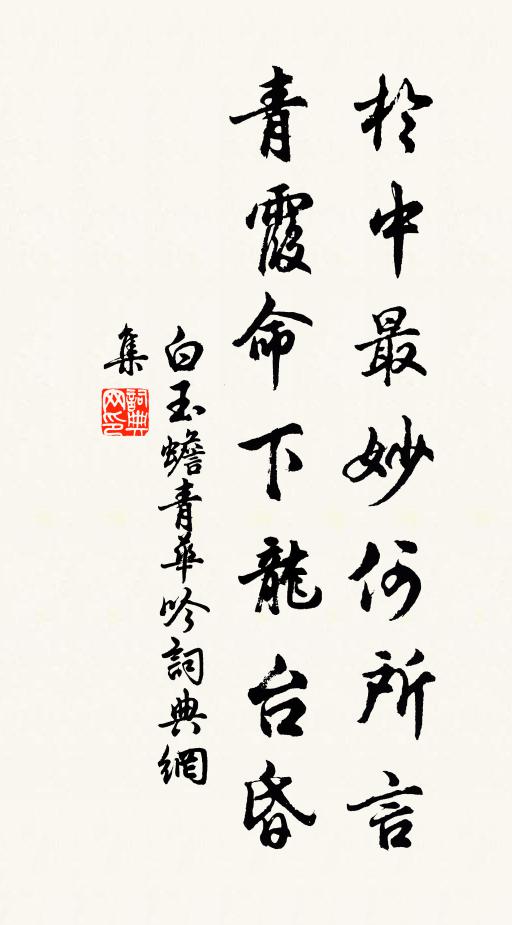 於中最妙何所言
青霞命下龍台昏
白玉蟾青華吟詞典網
集
詞典
网印